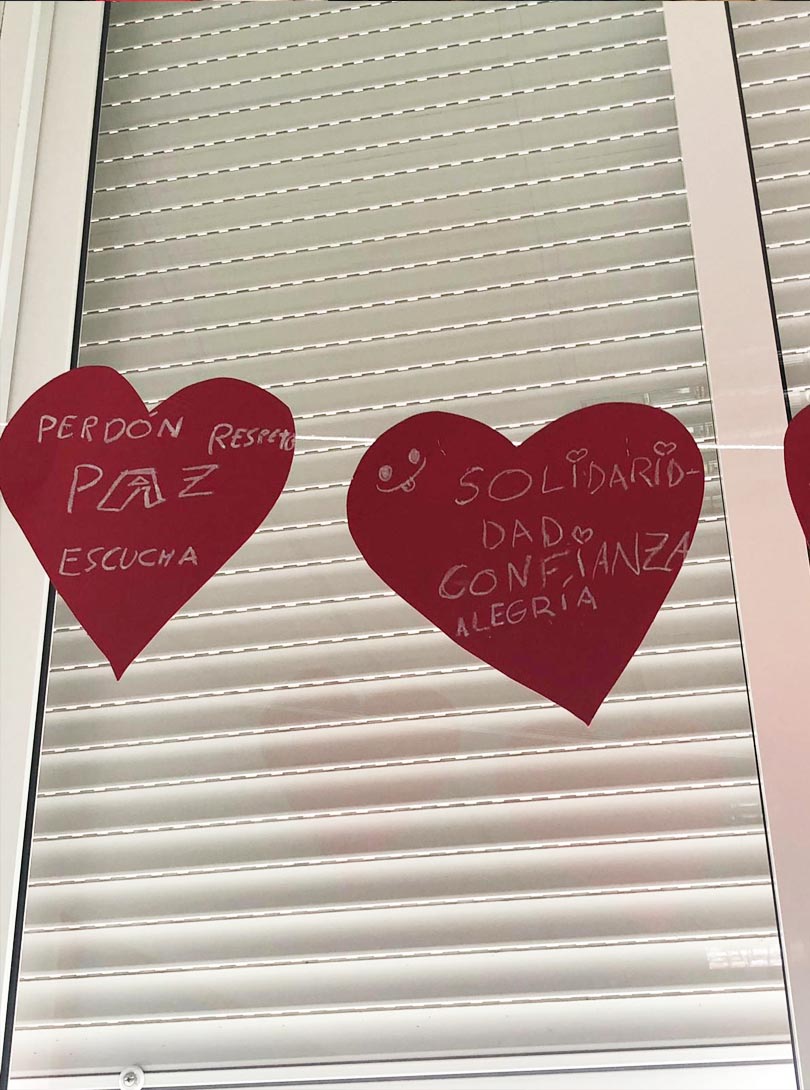 PERDÓN RESPETO
PAZ
ESCUCHA
SOLIDARID-
DAD
CONFIANZA
ALEGRÍA